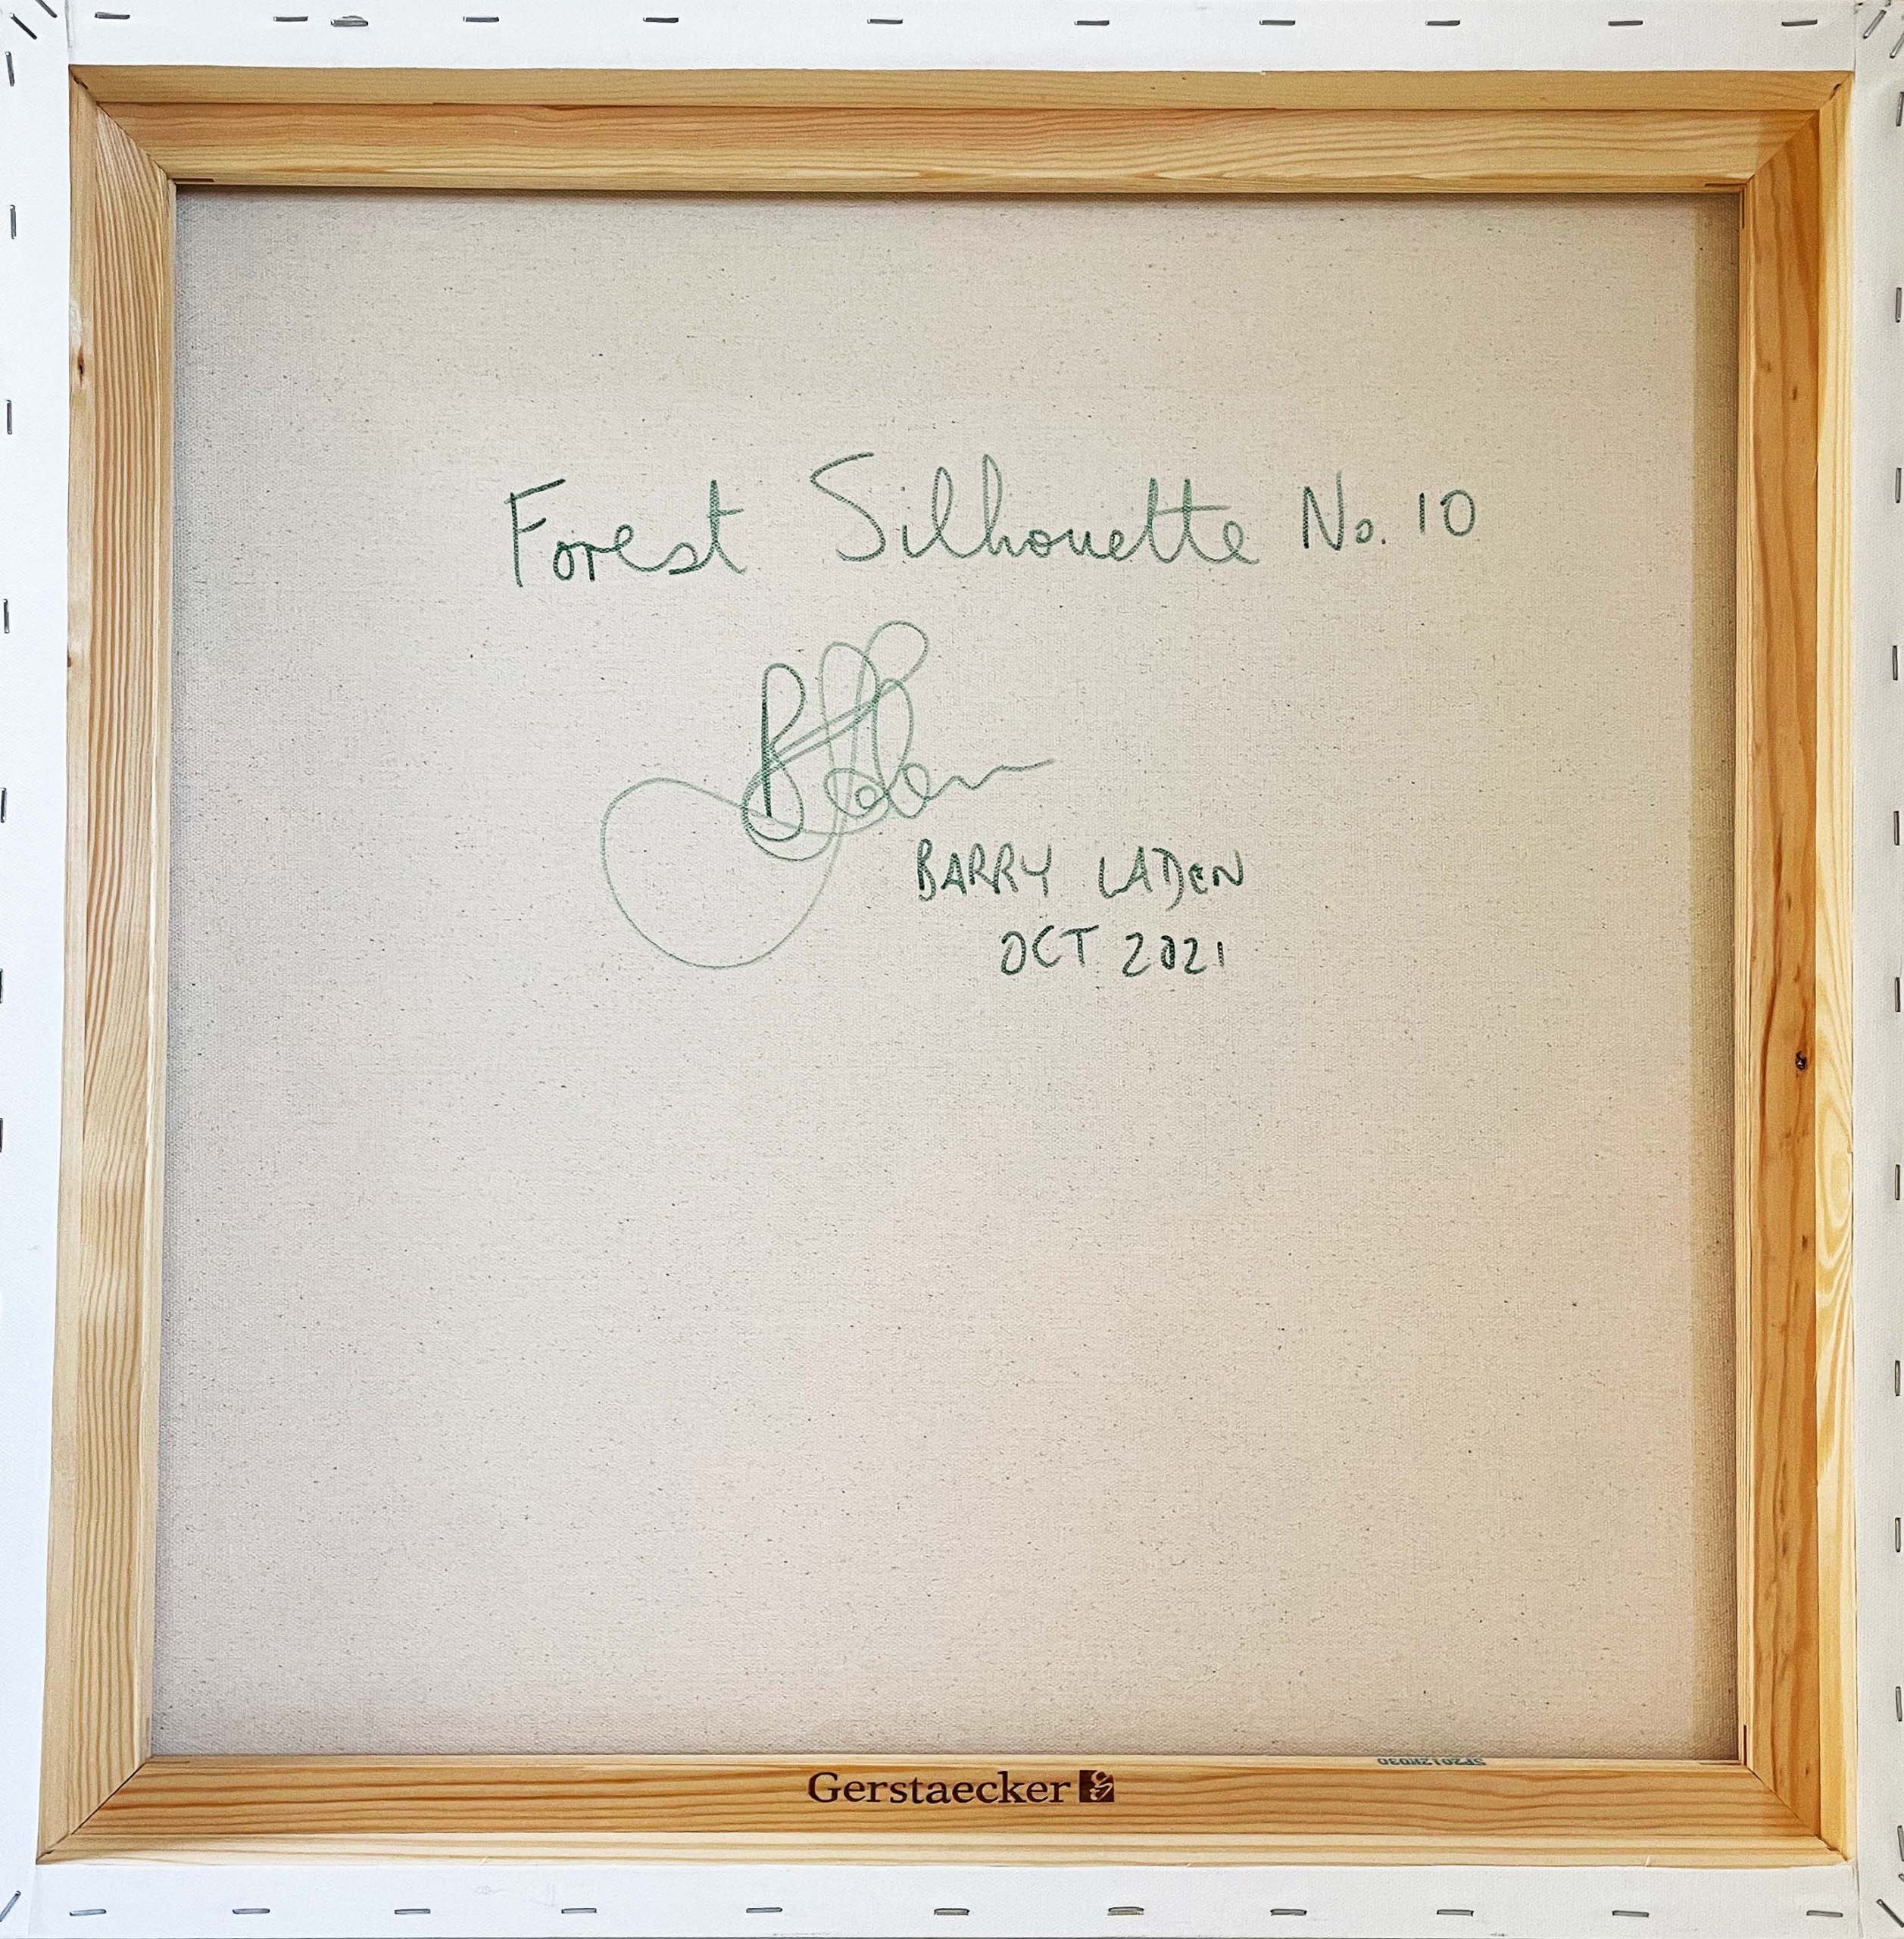 Forest Silhouette No. 10
BARRY LADEN
OCT 2021
Gerstaecker